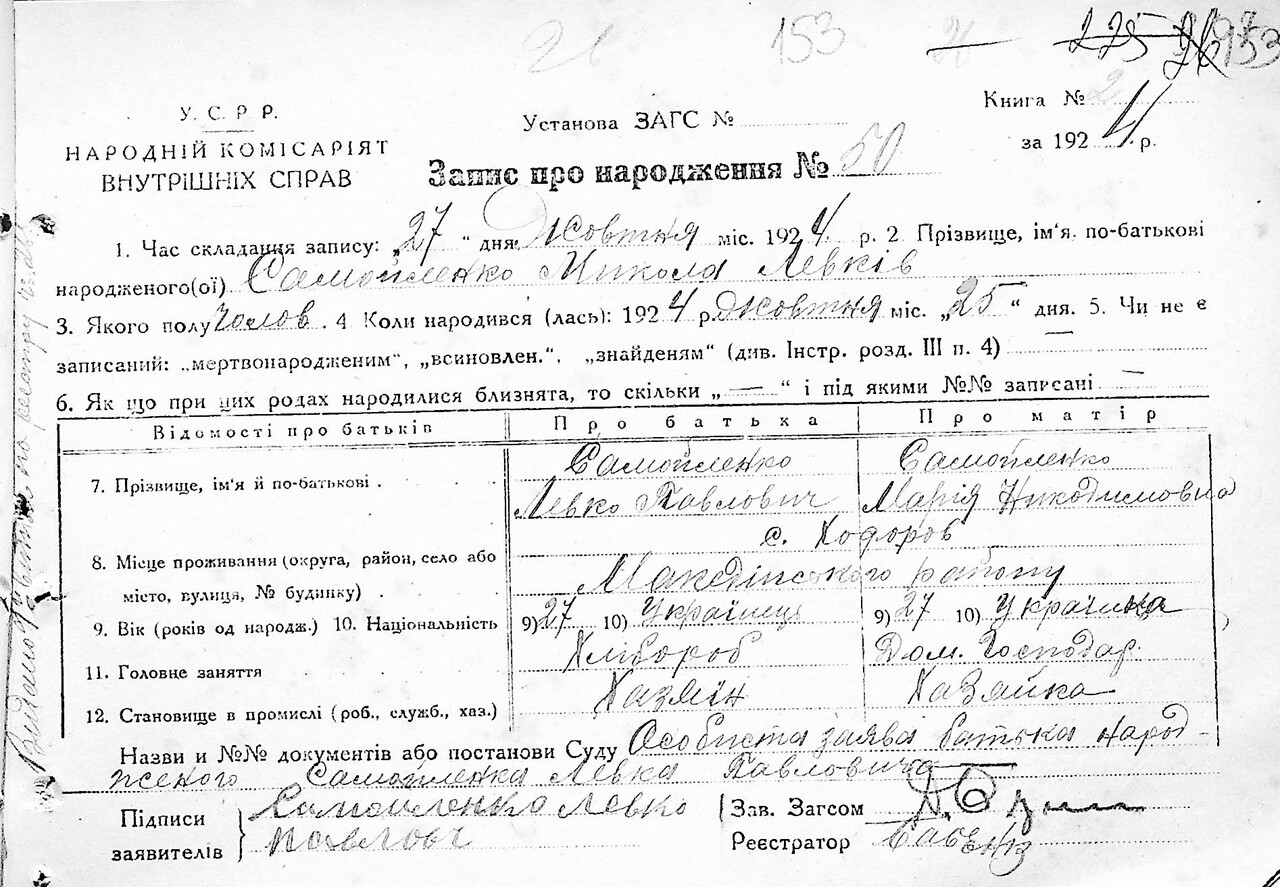 26 153 26 225 26 153
У. С. Р Р.
НАРОДНІЙ КОМІСАРІЯТ
ВНУТРІШНІХ СПРАВ
Установа ЗАГС №
Книга № 2
за 1924 р.
Запис про народження № 50
1. Час складання запису: „27 “ дня Жовтня міс. 1924 р. 2 Прізвище, ім'я, по-батькові
народженого(ої) Самойленко Микола Левків
3. Якого полу Чолов. 4 Коли народився (лась): 1924 р. Жовтня міс. „25 “ дня. 5. Чи не є
записаний: „мертвонародженим“, „всиновлен.“, „знайденям“ (див. Інстр. розд. III п. 4) —
6. Як що при цих родах народилися близнята, то скільки „ — “ і під якими №№ записані —
Відомості про батьків Про батька Про матір
7. Прізвище, ім'я й по-батькові . Самойленко Левко Павлович Самойленко Марія Никодимовна
8. Місце проживання (округа, район, село або місто, вулиця, № будинку) . с. Ходоров Макєдинського району
9. Вік (років од народж.) 10. Національність 9) 27 10) Українець 9) 27 10) Українка
11. Головне заняття Хлібороб Дом. Господар.
12. Становище в промислі (роб., служб., хаз.) Хазяїн Хазяйка
Назви и №№ документів або постанови Суду Особиста заява батька народ-
женого Самойленка Левка Павловича
Підписи заявителів } Самойленко Левко
Павлович
Зав. Загсом
Реєстратор
Видано